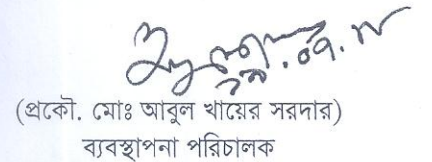 (প্রকৌ. মোঃ আবুল খায়ের সরদার)
ব্যবস্থাপনা পরিচালক